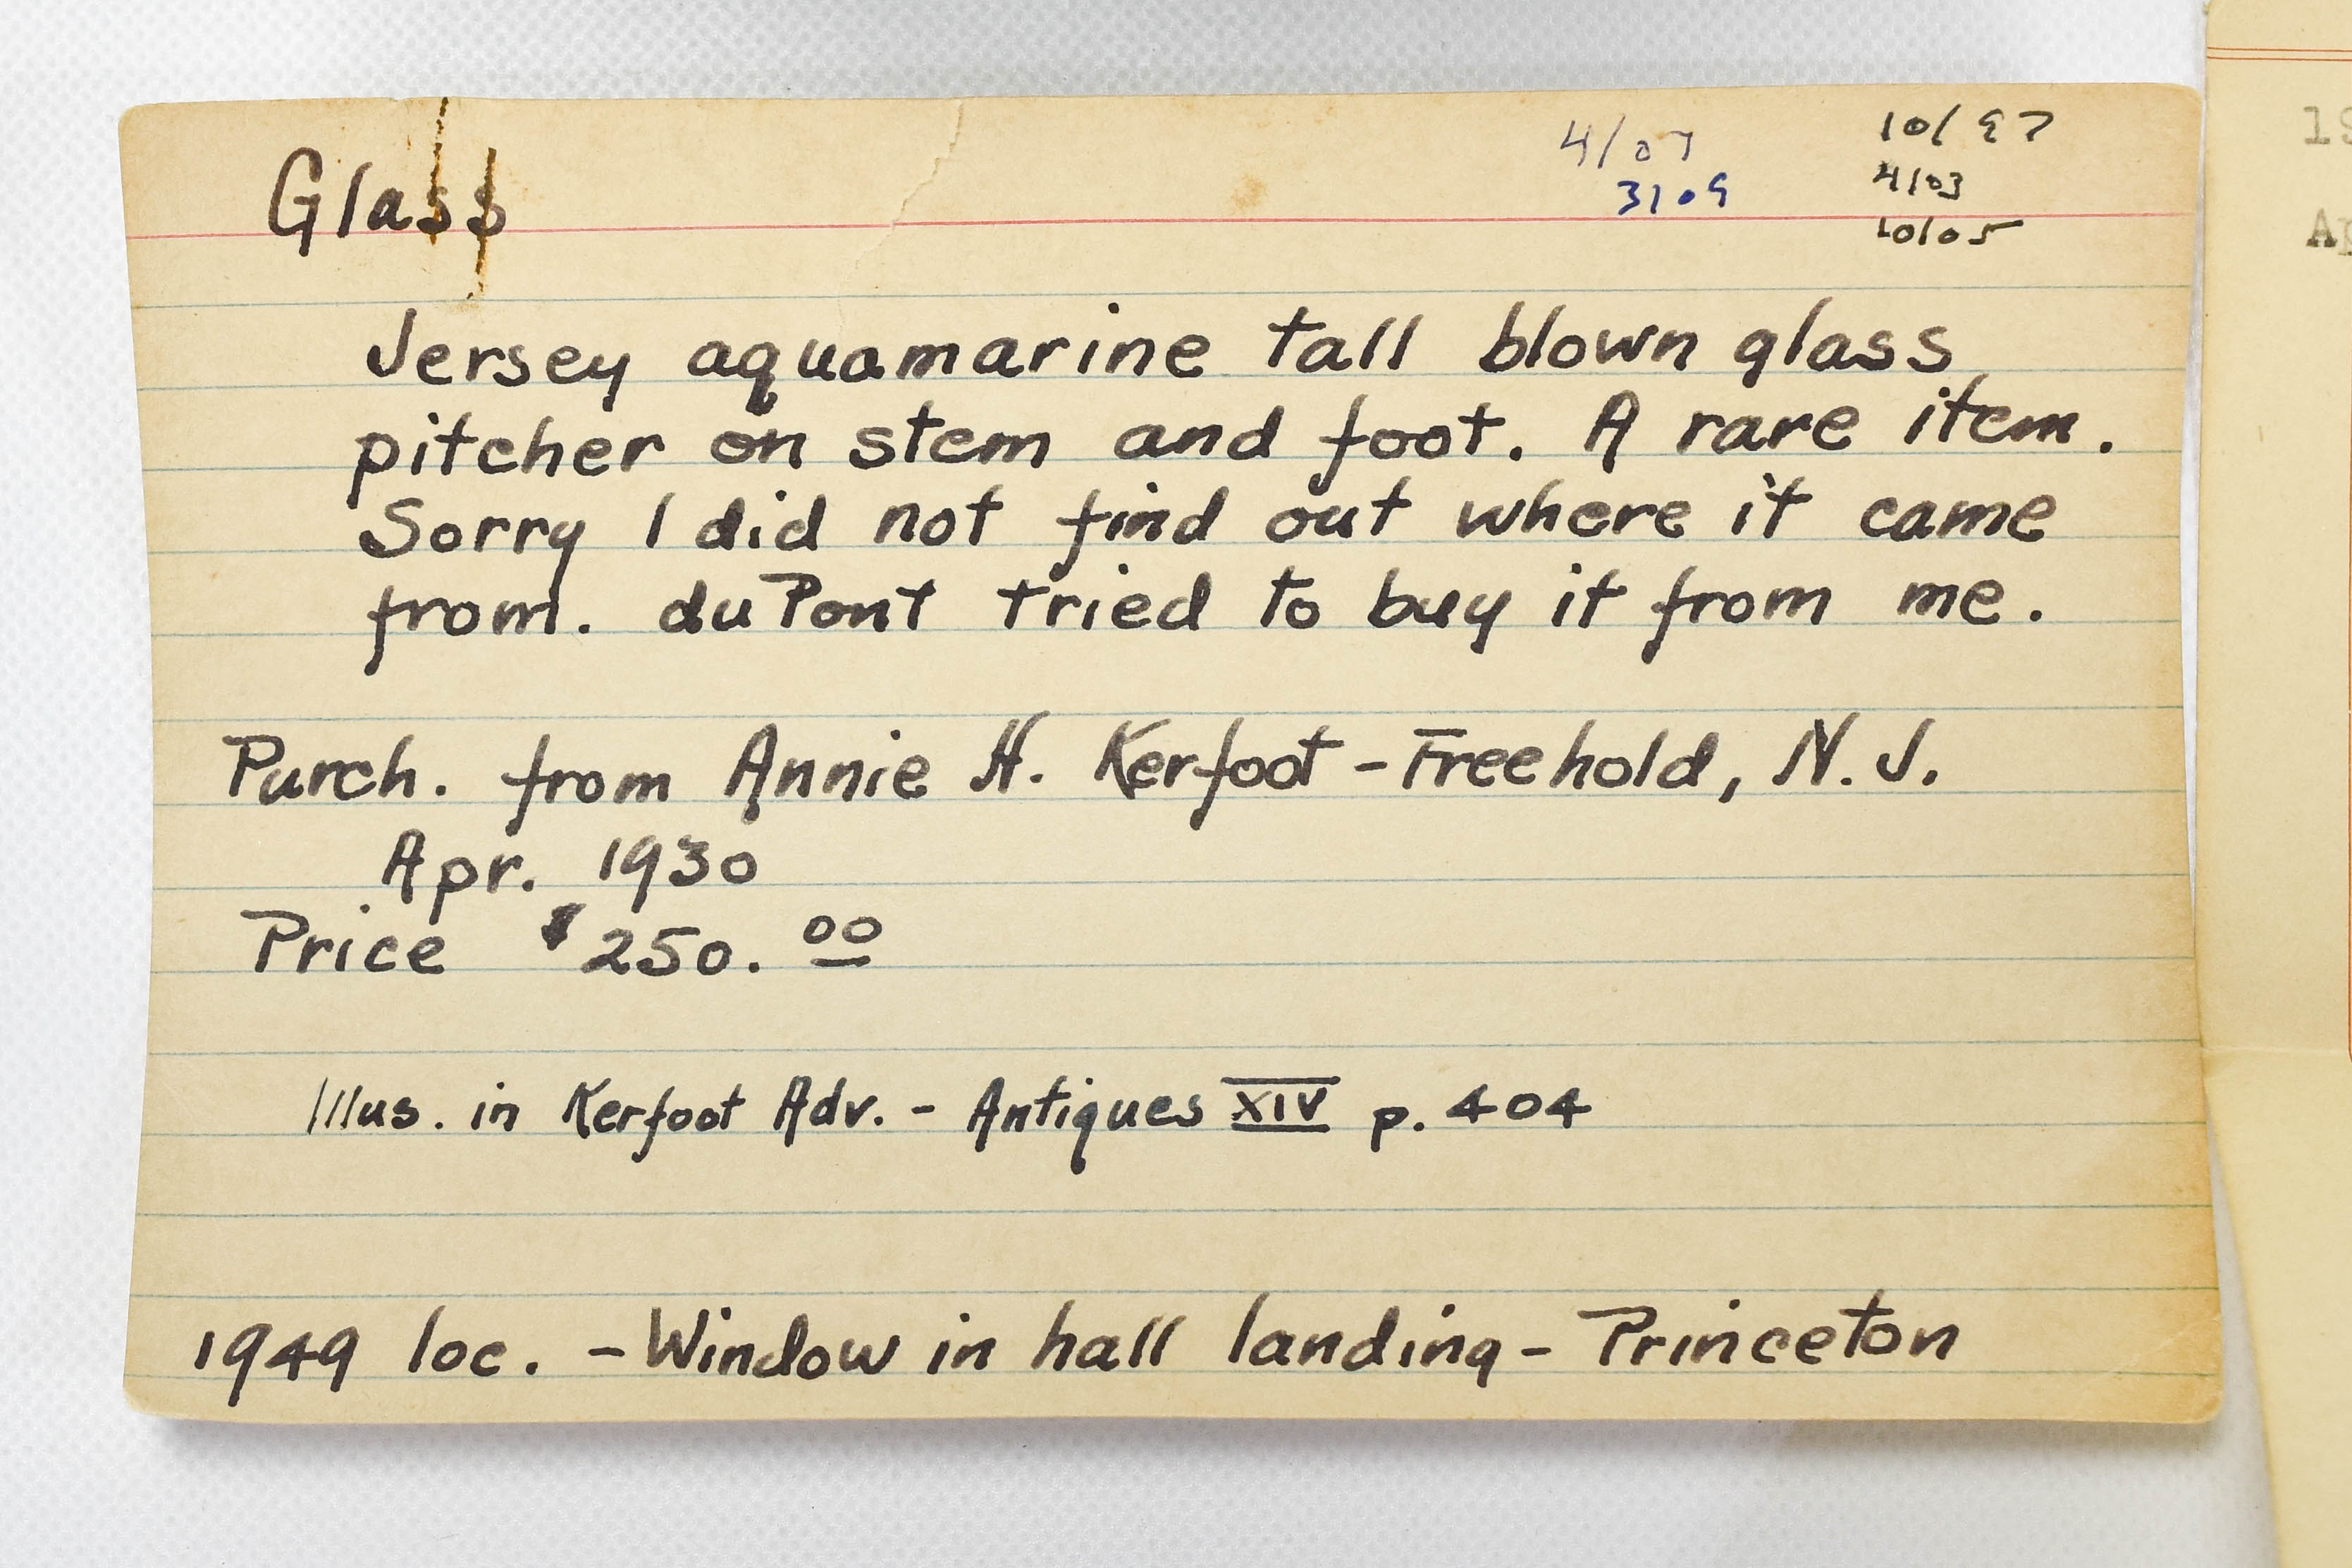 Glass
4/07
3/09
10/97
4/03
10/05
Jersey aquamarine tall blown glass
pitcher on stem and foot. A rare item.
Sorry I did not find out where it came
from. duPont tried to buy it from me.
Purch. from Annie H. Kerfoot - Freehold, N.J.
Apr. 1930
Price $250.00
Illus. in Kerfoot Adv. - Antiques XIV p. 404
1949 loc. - Window in hall landing - Princeton